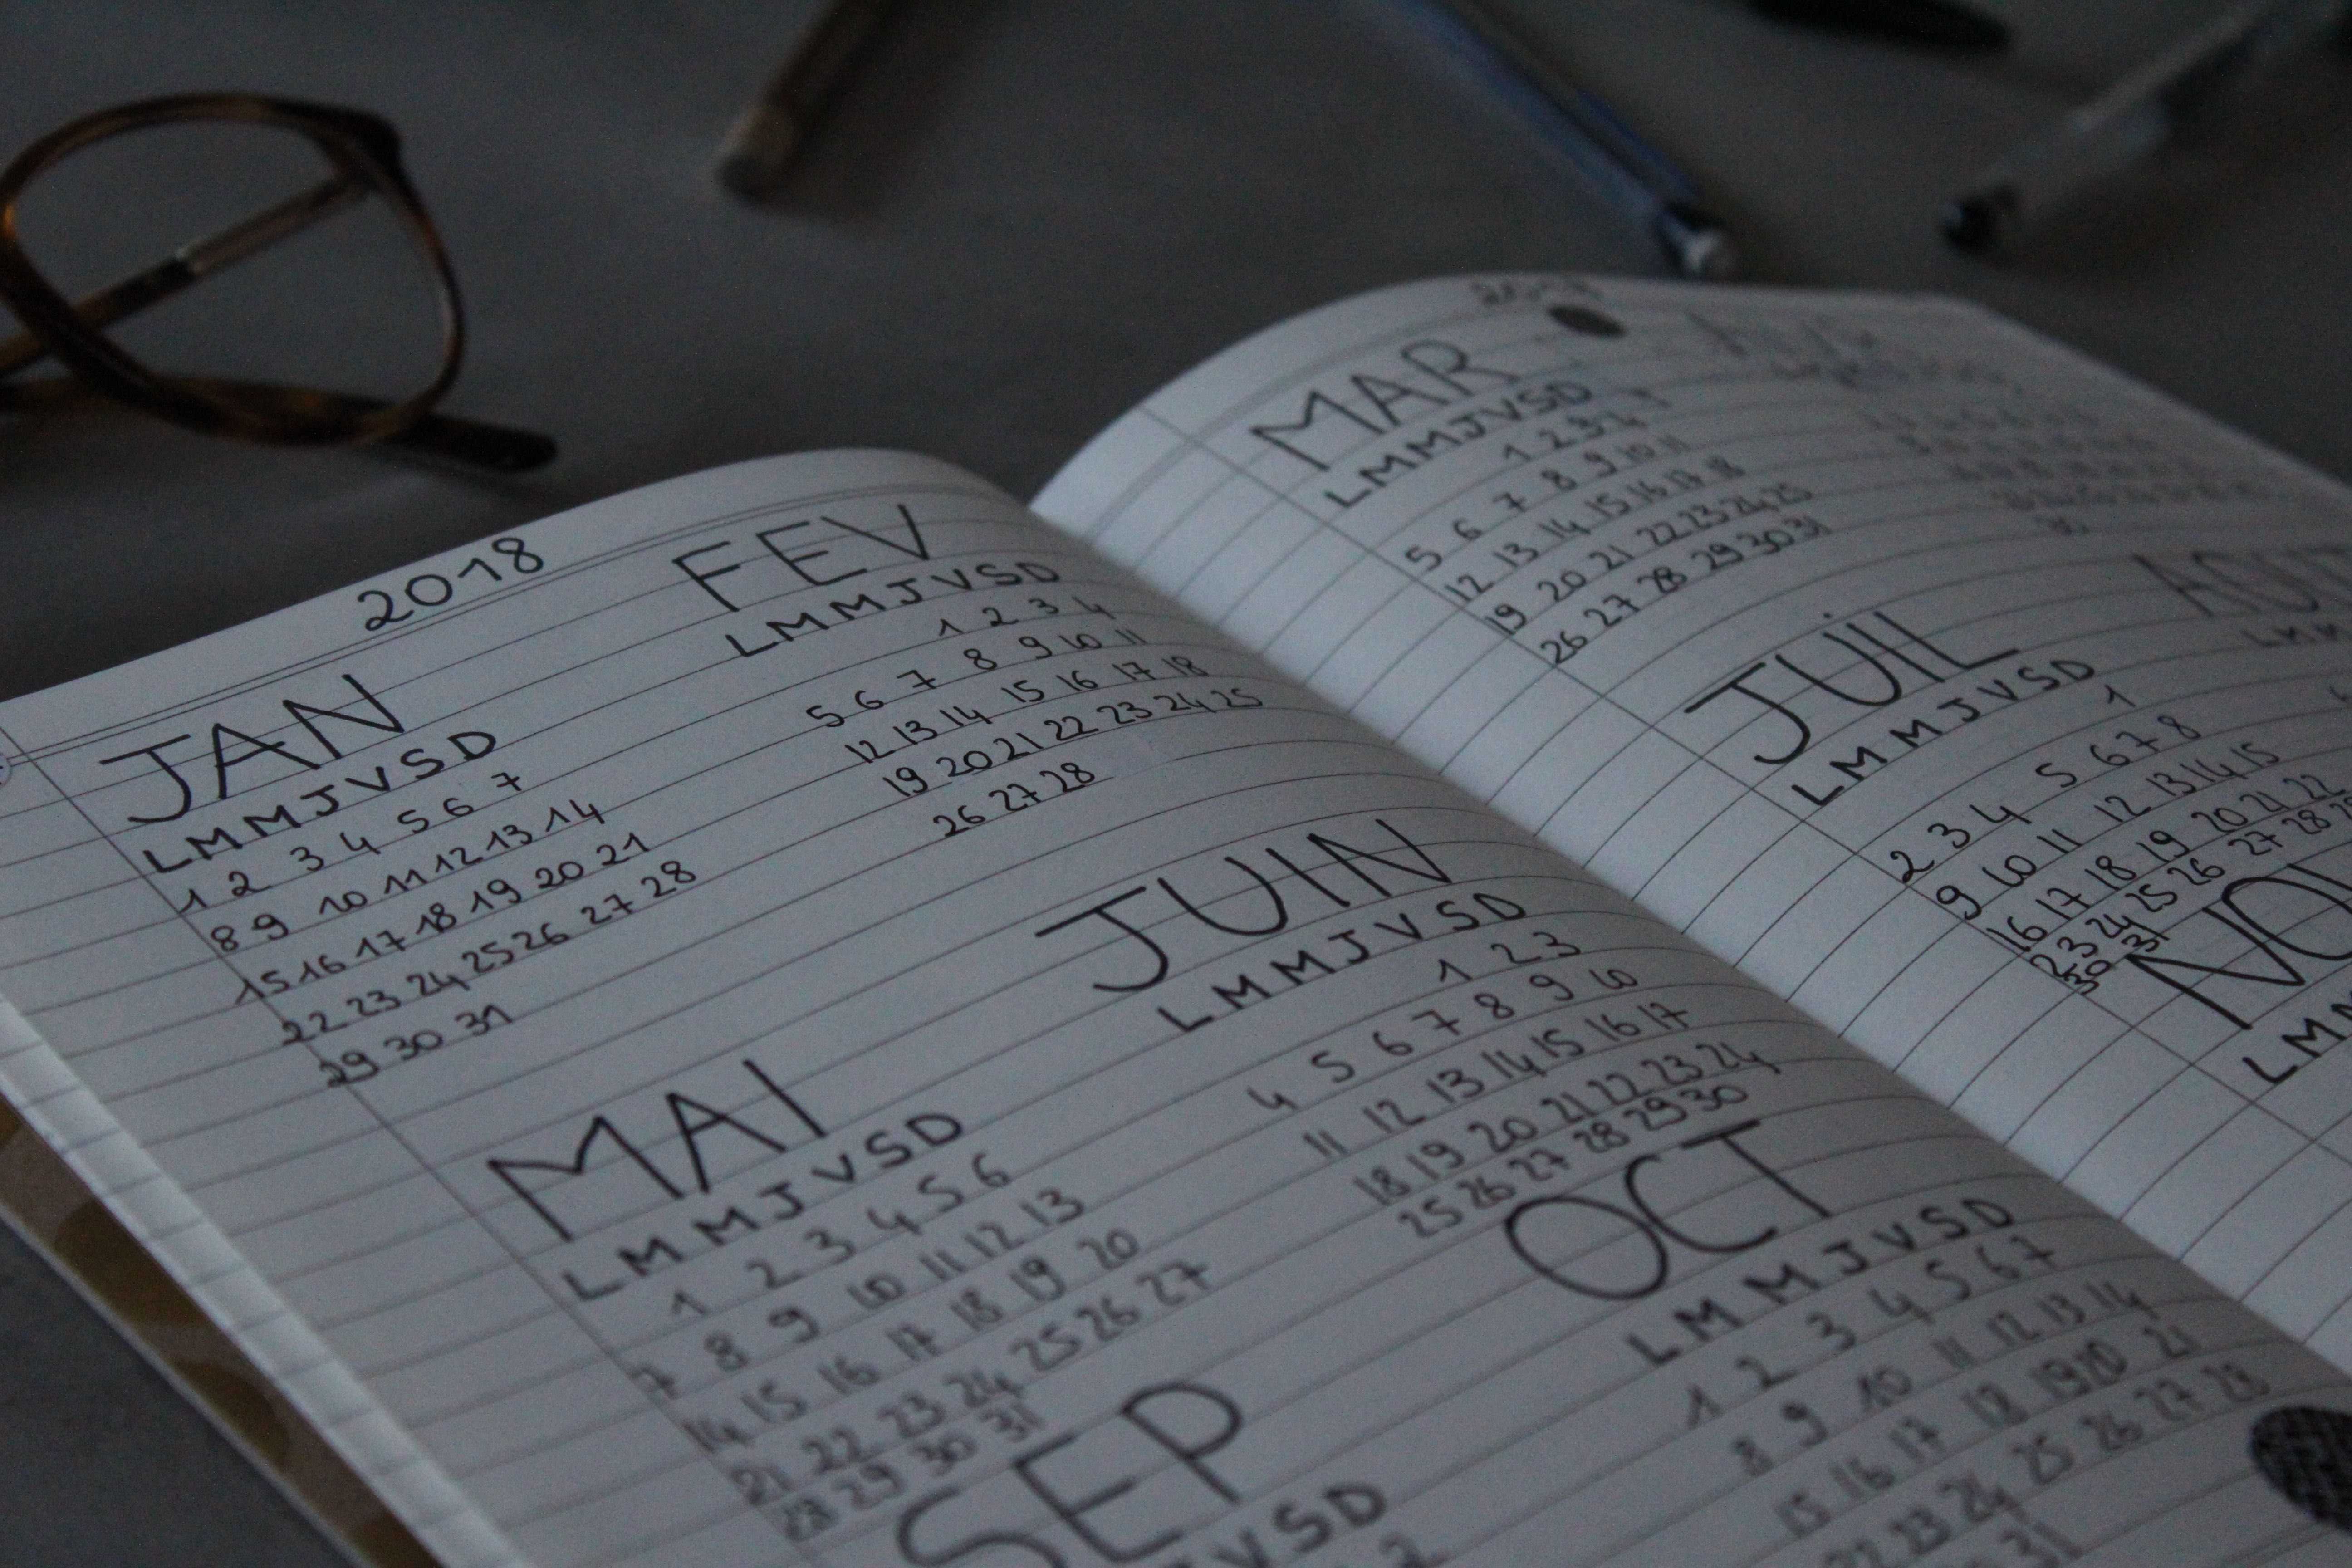 2018
JAN
L M M J V S D
1 2 3 4 5 6 7
8 9 10 11 12 13 14
15 16 17 18 19 20 21
22 23 24 25 26 27 28
29 30 31
FEV
L M M J V S D
1 2 3 4
5 6 7 8 9 10 11
12 13 14 15 16 17 18
19 20 21 22 23 24 25
26 27 28
MAI
L M M J V S D
1 2 3 4 5 6
7 8 9 10 11 12 13
14 15 16 17 18 19 20
21 22 23 24 25 26 27
28 29 30 31
JUIN
L M M J V S D
1 2 3
4 5 6 7 8 9 10
11 12 13 14 15 16 17
18 19 20 21 22 23 24
25 26 27 28 29 30
SEP
V S D
2
OCT
L M M J V S D
1 2 3 4 5 6 7
8 9 10 11 12 13 14
15 16 17 18 19 20 21
22 23 24 25 26 27 28
31
MAR
L M M J V S D
1 2 3 4
5 6 7 8 9 10 11
12 13 14 15 16 17 18
19 20 21 22 23 24 25
26 27 28 29 30 31
JUIL
L M M J V S D
1
2 3 4 5 6 7 8
9 10 11 12 13 14 15
16 17 18 19 20 21 22
23 24 25 26 27 28
30 31
AOUT
L M M
NOV
L M M